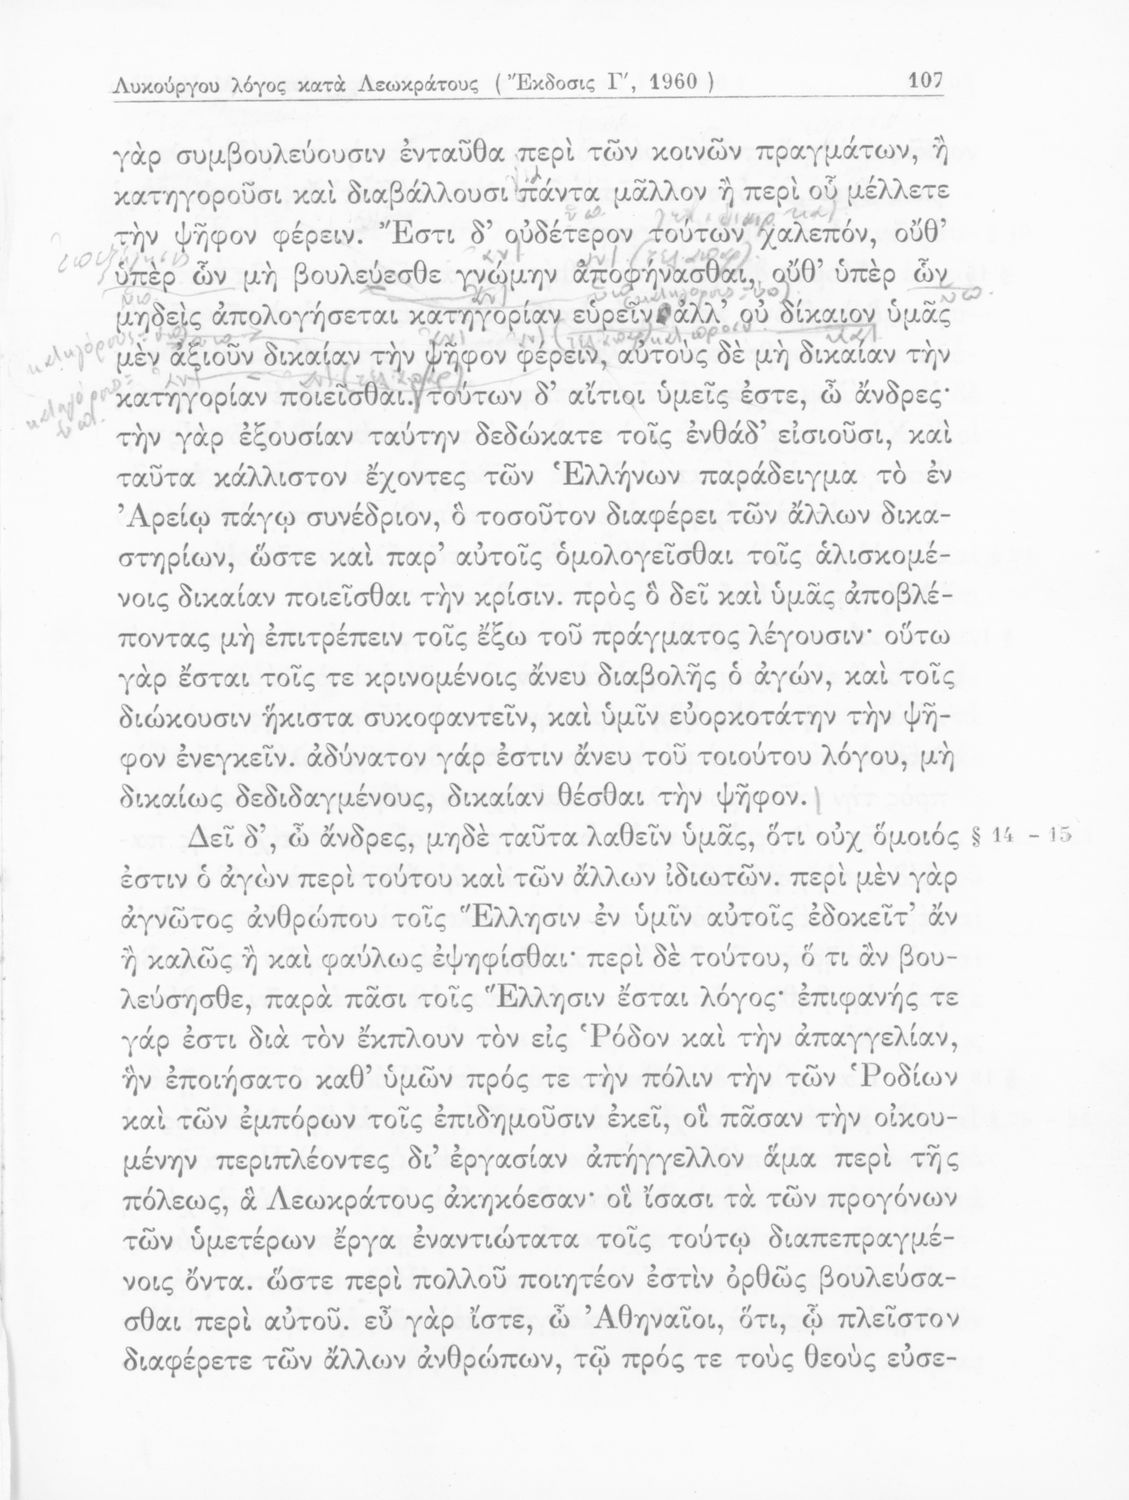 Λυκούργου λόγος κατὰ Λεωκράτους ( Ἔκδοσις Γ′, 1960 ) 107
γὰρ συμβουλεύουσιν ἐνταῦθα περὶ τῶν κοινῶν πραγμάτων, ἢ
κατηγοροῦσι καὶ διαβάλλουσι πάντα μᾶλλον ἢ περὶ οὗ μέλλετε
τὴν ψῆφον φέρειν. Ἔστι δ’ οὐδέτερον τούτων χαλεπόν, οὔθ’
ὑπὲρ ὧν μὴ βουλεύεσθε γνώμην ἀποφήνασθαι, οὔθ’ ὑπὲρ ὧν
μηδεὶς ἀπολογήσεται κατηγορίαν εὑρεῖν· ἀλλ’ οὐ δίκαιον ὑμᾶς
μὲν ἀξιοῦν δικαίαν τὴν ψῆφον φέρειν, αὐτοὺς δὲ μὴ δικαίαν τὴν
κατηγορίαν ποιεῖσθαι. τούτων δ’ αἴτιοι ὑμεῖς ἐστε, ὦ ἄνδρες·
τὴν γὰρ ἐξουσίαν ταύτην δεδώκατε τοῖς ἐνθάδ’ εἰσιοῦσι, καὶ
ταῦτα κάλλιστον ἔχοντες τῶν Ἑλλήνων παράδειγμα τὸ ἐν
Ἀρείῳ πάγῳ συνέδριον, ὃ τοσοῦτον διαφέρει τῶν ἄλλων δικα-
στηρίων, ὥστε καὶ παρ’ αὐτοῖς ὁμολογεῖσθαι τοῖς ἁλισκομέ-
νοις δικαίαν ποιεῖσθαι τὴν κρίσιν. πρὸς ὃ δεῖ καὶ ὑμᾶς ἀποβλέ-
ποντας μὴ ἐπιτρέπειν τοῖς ἔξω τοῦ πράγματος λέγουσιν· οὕτω
γὰρ ἔσται τοῖς τε κρινομένοις ἄνευ διαβολῆς ὁ ἀγών, καὶ τοῖς
διώκουσιν ἥκιστα συκοφαντεῖν, καὶ ὑμῖν εὐορκοτάτην τὴν ψῆ-
φον ἐνεγκεῖν. ἀδύνατον γάρ ἐστιν ἄνευ τοῦ τοιούτου λόγου, μὴ
δικαίως δεδιδαγμένους, δικαίαν θέσθαι τὴν ψῆφον.
Δεῖ δ’, ὦ ἄνδρες, μηδὲ ταῦτα λαθεῖν ὑμᾶς, ὅτι οὐχ ὅμοιός § 14 - 15
ἐστιν ὁ ἀγὼν περὶ τούτου καὶ τῶν ἄλλων ἰδιωτῶν. περὶ μὲν γὰρ
ἀγνῶτος ἀνθρώπου τοῖς Ἕλλησιν ἐν ὑμῖν αὐτοῖς ἐδοκεῖτ’ ἄν
ἢ καλῶς ἢ καὶ φαύλως ἐψηφίσθαι· περὶ δὲ τούτου, ὅ τι ἂν βου-
λεύσησθε, παρὰ πᾶσι τοῖς Ἕλλησιν ἔσται λόγος· ἐπιφανής τε
γάρ ἐστι διὰ τὸν ἔκπλουν τὸν εἰς Ῥόδον καὶ τὴν ἀπαγγελίαν,
ἣν ἐποιήσατο καθ’ ὑμῶν πρός τε τὴν πόλιν τὴν τῶν Ῥοδίων
καὶ τῶν ἐμπόρων τοῖς ἐπιδημοῦσιν ἐκεῖ, οἳ πᾶσαν τὴν οἰκου-
μένην περιπλέοντες δι’ ἐργασίαν ἀπήγγελλον ἅμα περὶ τῆς
πόλεως, ἃ Λεωκράτους ἀκηκόεσαν· οἳ ἴσασι τὰ τῶν προγόνων
τῶν ὑμετέρων ἔργα ἐναντιώτατα τοῖς τούτῳ διαπεπραγμέ-
νοις ὄντα. ὥστε περὶ πολλοῦ ποιητέον ἐστὶν ὀρθῶς βουλεύσα-
σθαι περὶ αὐτοῦ. εὖ γὰρ ἴστε, ὦ Ἀθηναῖοι, ὅτι, ᾧ πλεῖστον
διαφέρετε τῶν ἄλλων ἀνθρώπων, τῷ πρός τε τοὺς θεοὺς εὐσε-